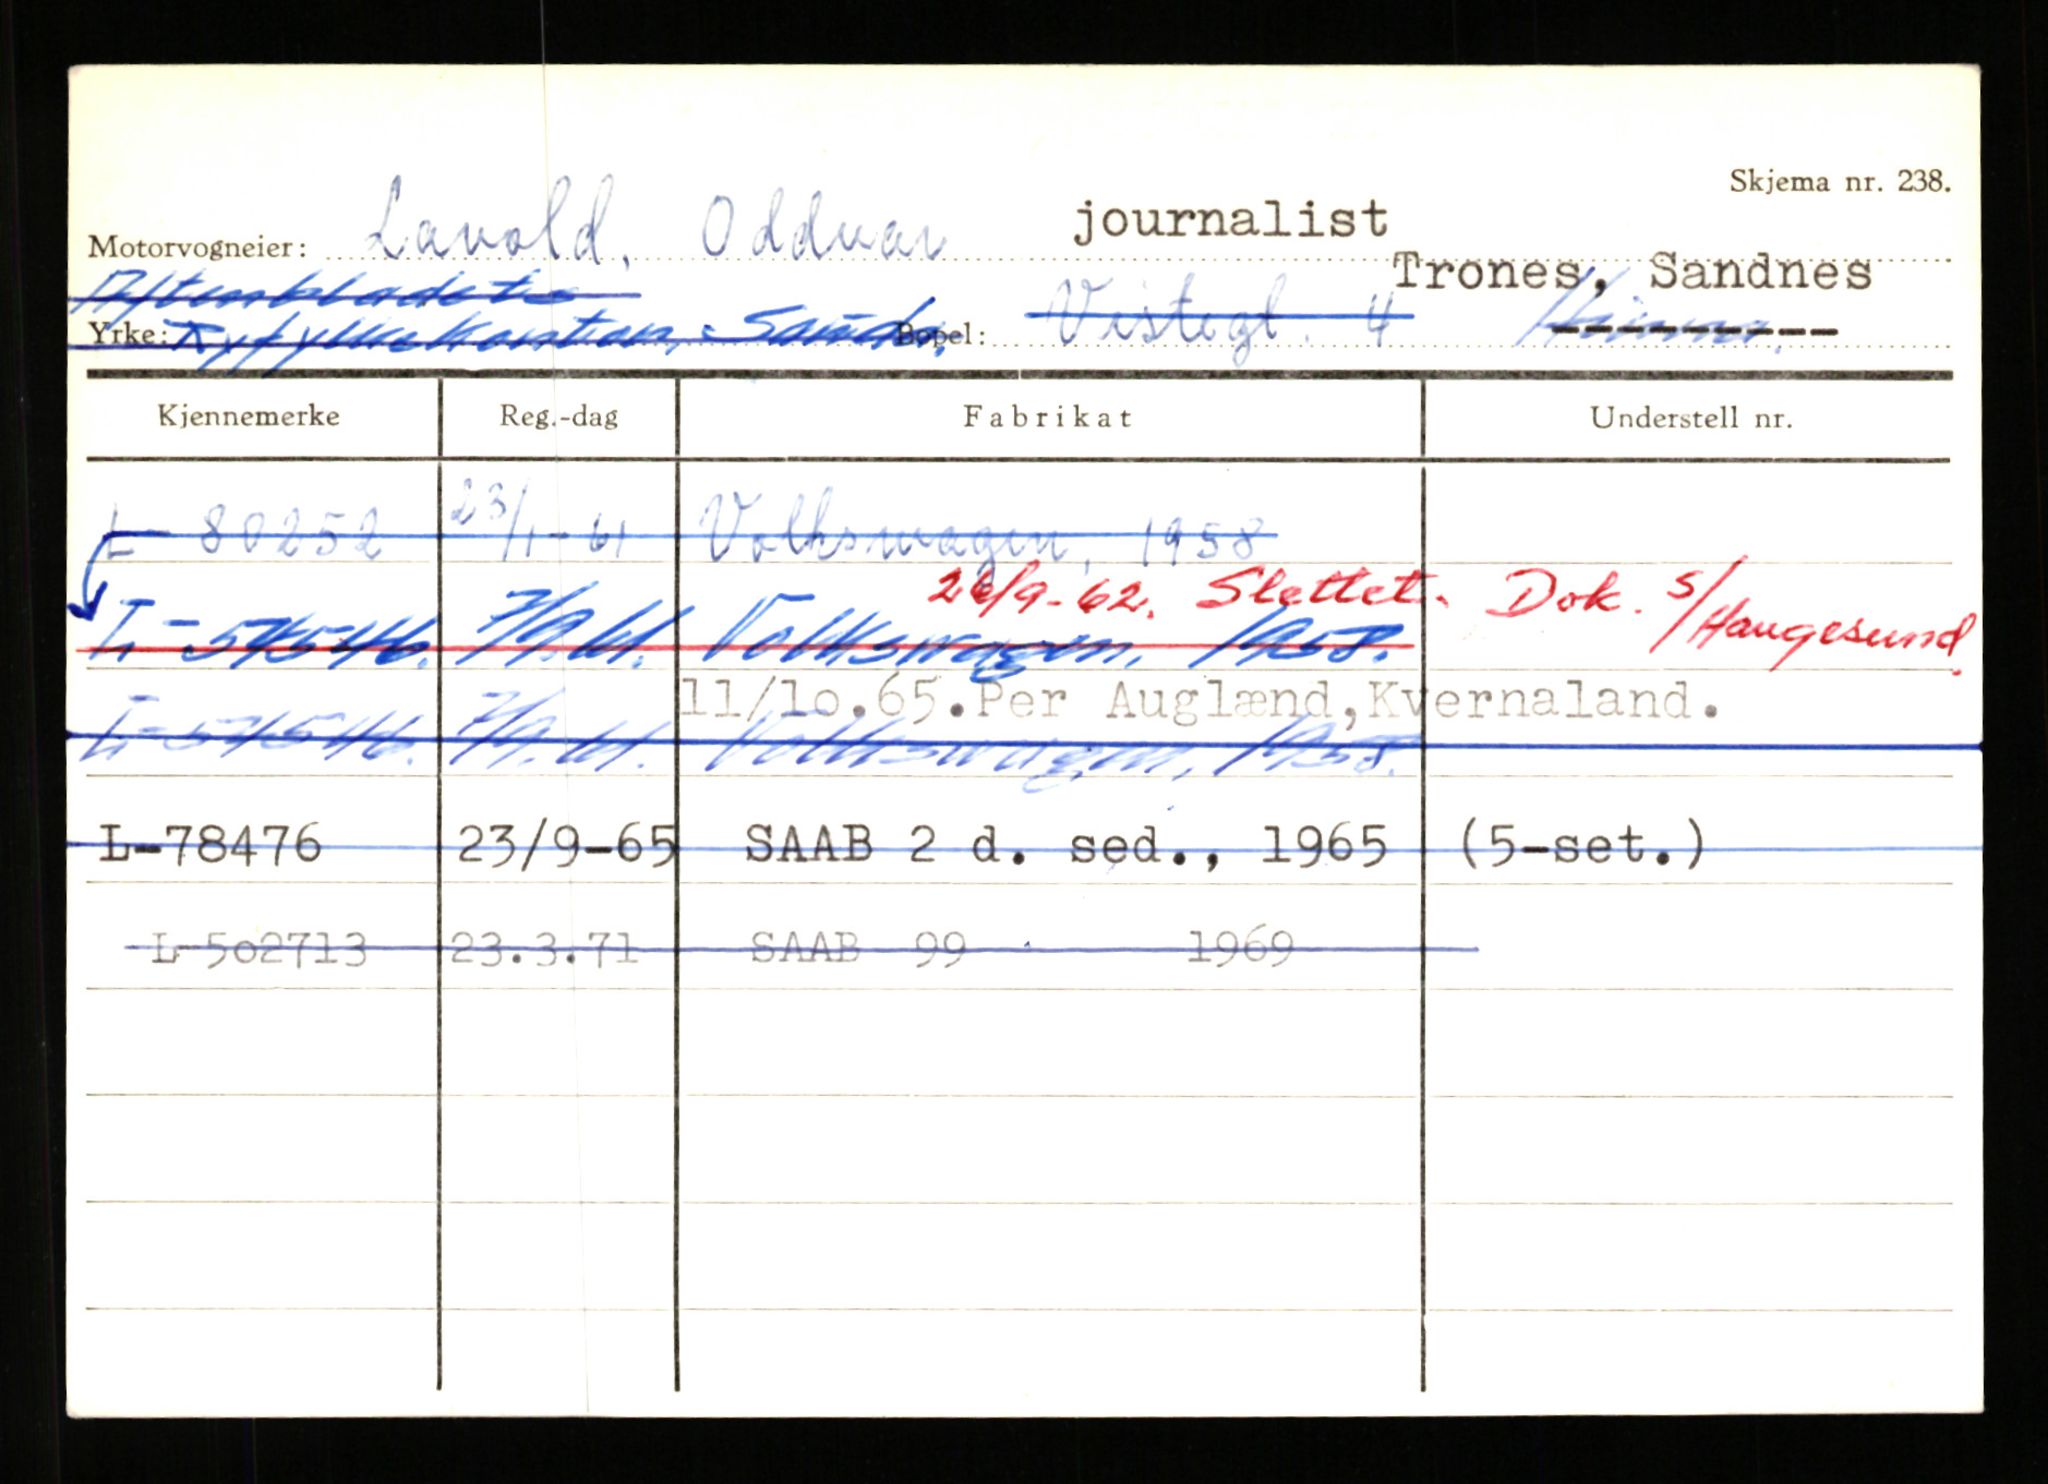 Skjema nr. 238.
Motorvogneier: Lavold, Oddvar journalist
Trones, Sandnes
Aftenbladets
Yrke: Ryfylkekontor, Sand. Bopel: Vistegt. 4 Hinna.
Kjennemerke Reg.-dag Fabrikat Understell nr.
L- 80252 23/1-61 Volkswagen, 1958
26/9-62. Slettet. Dok. s/Haugesund.
L-54546. 7/9.61. Volkswagen, 1958.
11/1o.65.Per Auglænd,Kvernaland.
L-54546. 7/9.61. Volkswagen, 1958.
L-78476 23/9-65 SAAB 2 d. sed., 1965 (5-set.)
L-5o2713 23.3.71 SAAB 99 1969